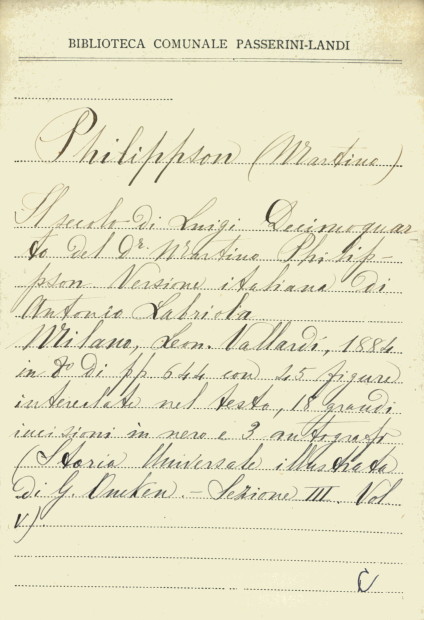 BIBLIOTECA COMUNALE PASSERINI-LANDI
Philippson (Martino)
Il secolo di Luigi Decimoquar
to del dr. Martino Philip-
pson Versione italiana di
Antonio Labriola
Milano, Leon. Vallardi, 1884
in 8º di pp 644 con 45 figure
intercalate nel testo, 18 grandi
incisioni in nero e 3 autografi
(Storia Universale illustrata
di G. Oncken. - Sezione III. Vol
V)
C